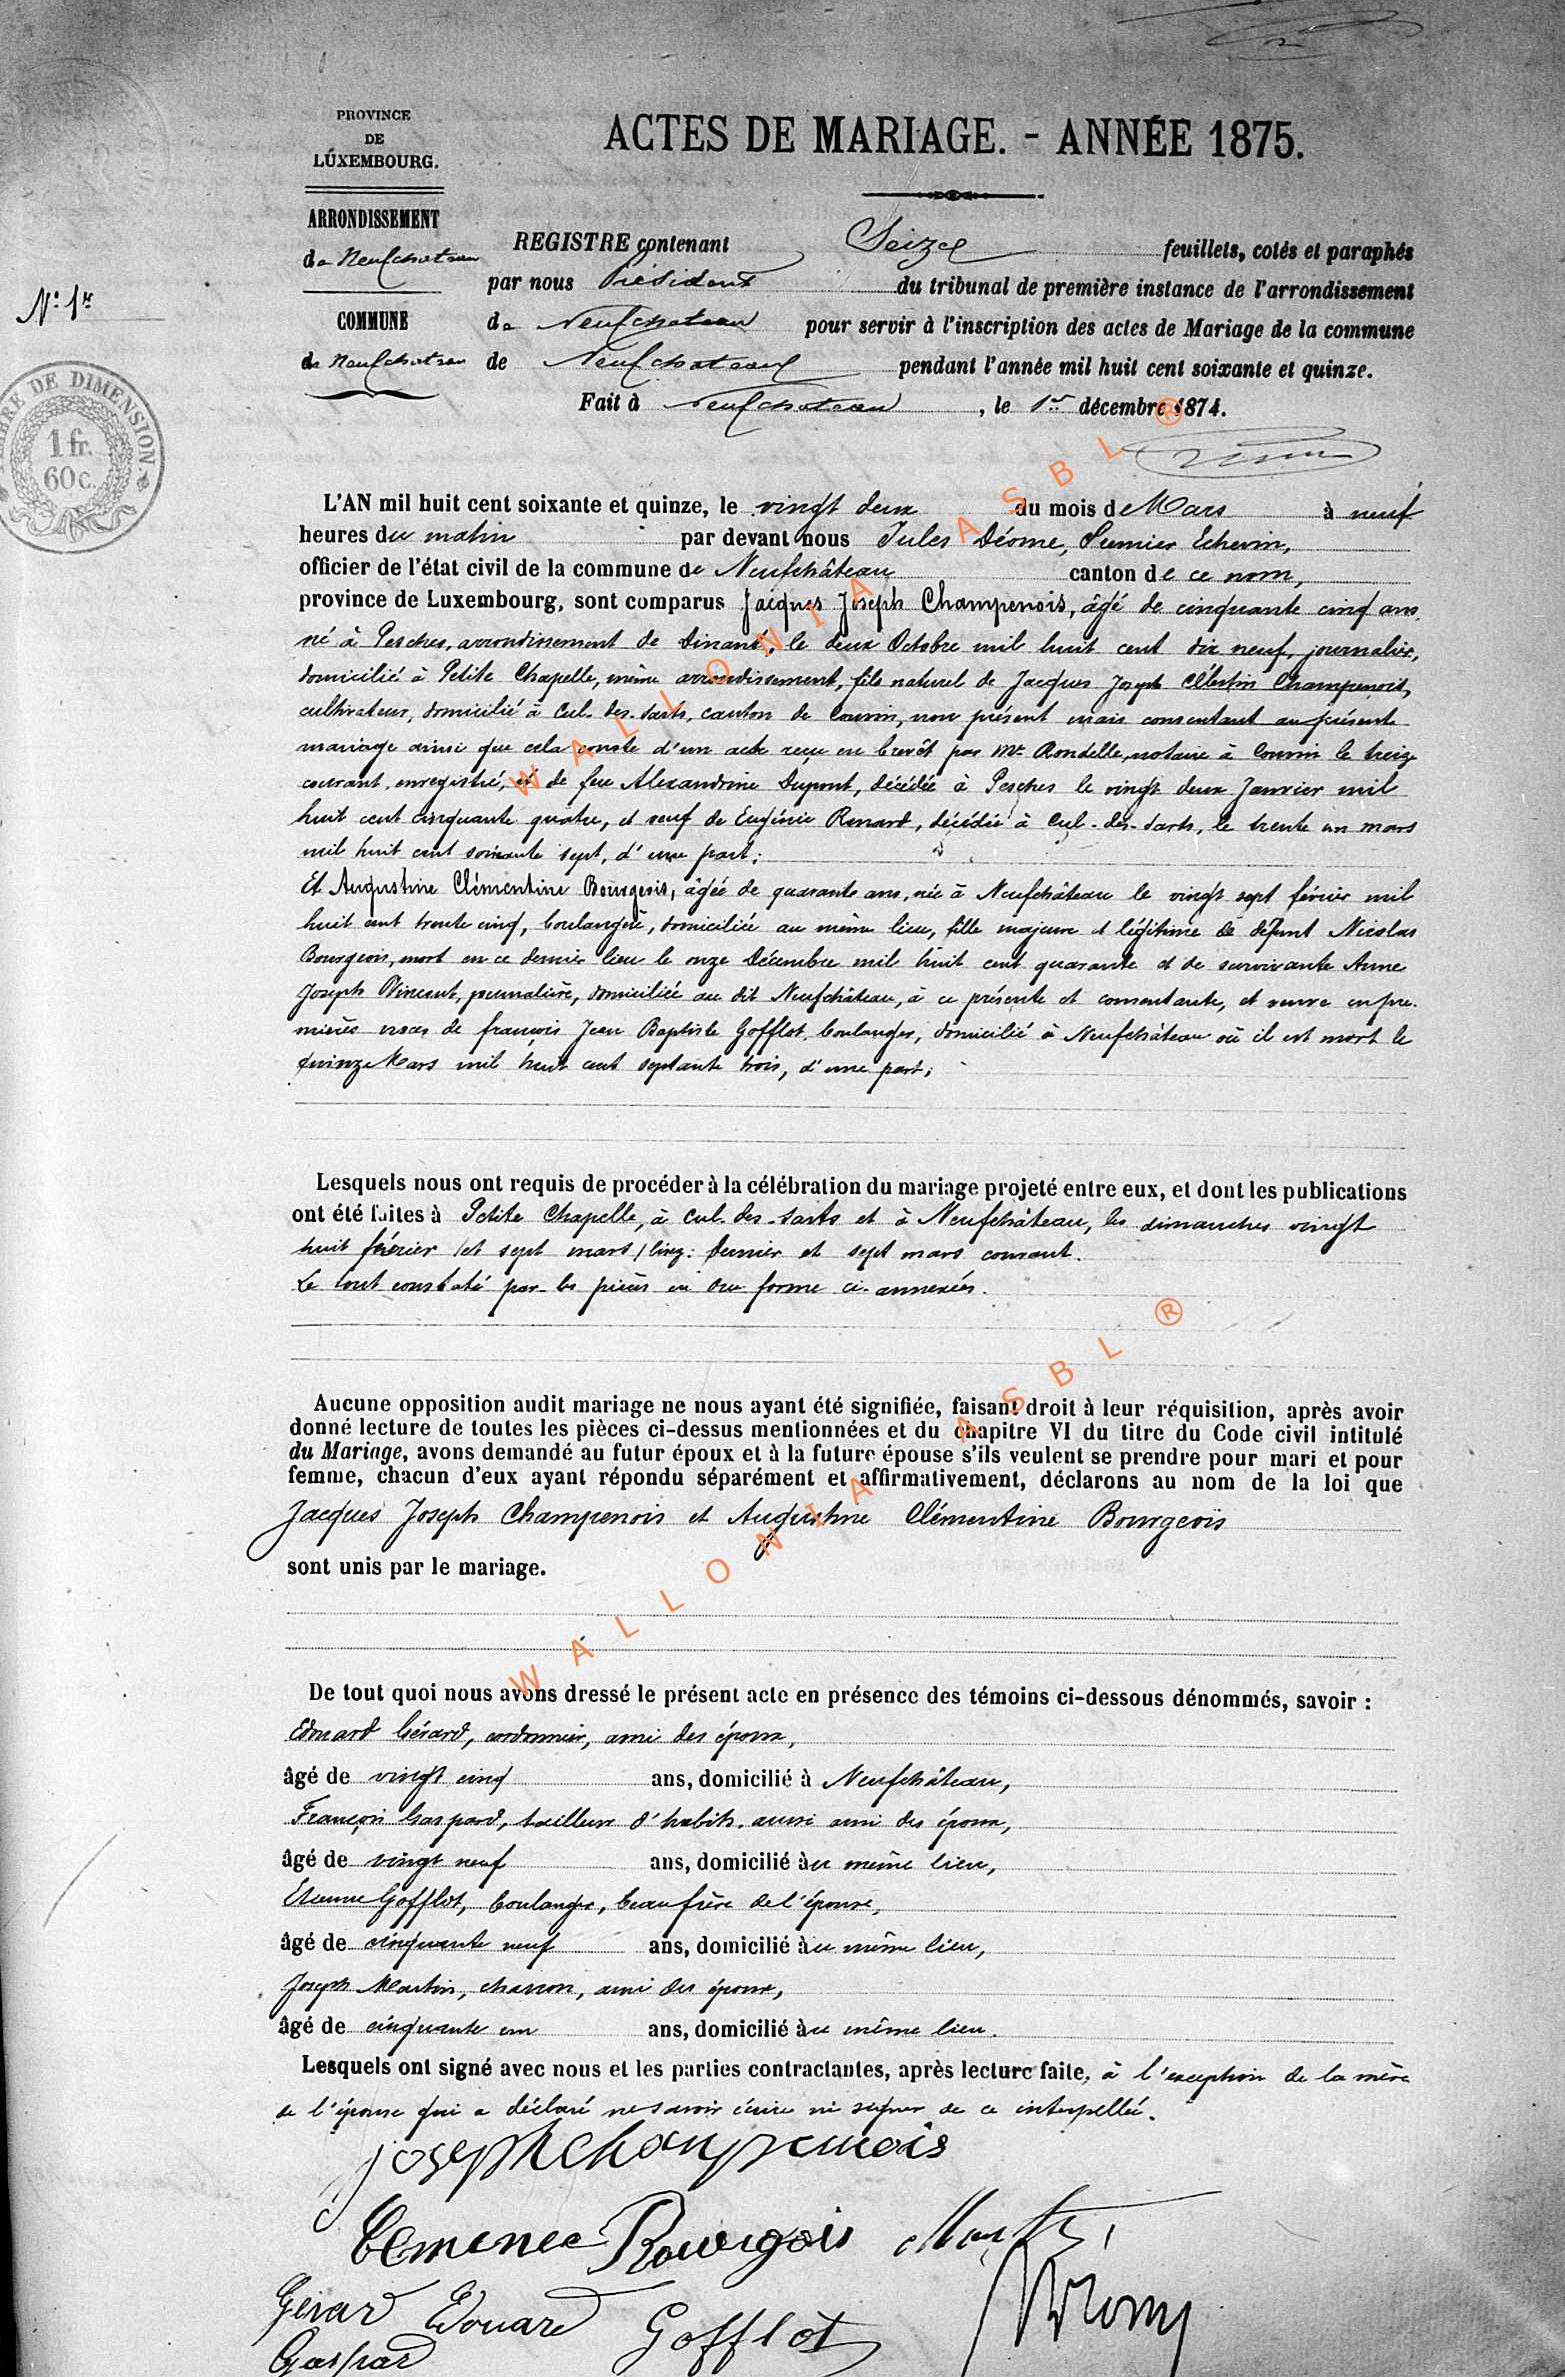 PROVINCE
DE
LUXEMBOURG.
ARRONDISSEMENT
de Neufchateau
COMMUNE
de Neufchateau
N° 1er
TIMBRE DE DIMENSION.
1 fr.
60 c.
ACTES DE MARIAGE. - ANNÉE 1875.
REGISTRE contenant Seize feuillets, cotés et paraphés
par nous Président du tribunal de première instance de l'arrondissement
de Neufchateau pour servir à l'inscription des actes de Mariage de la commune
de Neufchateau pendant l'année mil huit cent soixante et quinze.
Fait à Neufchateau, le 1er décembre 1874.
L'AN mil huit cent soixante et quinze, le vingt deux du mois de Mars à neuf
heures du matin par devant nous Jules Déome, Premier Echevin,
officier de l'état civil de la commune de Neufchâteau canton de ce nom,
province de Luxembourg, sont comparus Jacques Joseph Champenois, âgé de cinquante cinq ans,
né à Pesches, arrondissement de Dinant, le deux Octobre mil huit cent dix neuf, journalier,
domicilié à Petite Chapelle, même arrondissement, fils naturel de Jacques Joseph Célestin Champenois,
cultivateur, domicilié à Cul-des-Sarts, canton de Couvin, non présent mais consentant au présent
mariage ainsi que cela conste d'un acte reçu en brevêt par Me Rondelle, notaire à Couvin le treize
courant, enregistré, et de feue Alexandrine Dupont, décédée à Pesches le vingt deux Janvier mil
huit cent cinquante quatre, et veuf de Eugénie Renard, décédée à Cul-des-Sarts, le trente un mars
mil huit cent soixante sept, d'une part;
Et Augustine Clémentine Bourgeois, âgée de quarante ans, née à Neufchâteau le vingt sept février mil
huit cent trente cinq, boulangère, domiciliée au même lieu, fille majeure et légitime de défunt Nicolas
Bourgeois, mort en ce dernier lieu le onze Décembre mil huit cent quarante et de survivante Anne
Joseph Vincent, journalière, domiciliée au dit Neufchâteau, à ce présente et consentante, et veuve en pre-
mières noces de françois Jean Baptiste Gofflot, boulanger, domicilié à Neufchâteau où il est mort le
quinze Mars mil huit cent septante trois, d'une part;
Lesquels nous ont requis de procéder à la célébration du mariage projeté entre eux, et dont les publications
ont été faites à Petite Chapelle, à Cul-des-Sarts et à Neufchâteau, les dimanches vingt
huit février /et sept mars/ lisez: dernier et sept mars courant.
Le tout constaté par les pièces en due forme ci-annexées.
Aucune opposition audit mariage ne nous ayant été signifiée, faisant droit à leur réquisition, après avoir
donné lecture de toutes les pièces ci-dessus mentionnées et du chapitre VI du titre du Code civil intitulé
du Mariage, avons demandé au futur époux et à la future épouse s'ils veulent se prendre pour mari et pour
femme, chacun d'eux ayant répondu séparément et affirmativement, déclarons au nom de la loi que
Jacques Joseph Champenois et Augustine Clémentine Bourgeois
sont unis par le mariage.
De tout quoi nous avons dressé le présent acte en présence des témoins ci-dessous dénommés, savoir :
Edouard Gérard, cordonnier, ami des époux,
âgé de vingt cinq ans, domicilié à Neufchâteau,
François Gaspard, tailleur d'habits, aussi ami des époux,
âgé de vingt neuf ans, domicilié au même lieu,
Etienne Gofflot, boulanger, beau frère de l'épouse,
âgé de cinquante neuf ans, domicilié au même lieu,
Joseph Martin, charron, ami des époux,
âgé de cinquante un ans, domicilié au même lieu.
Lesquels ont signé avec nous et les parties contractantes, après lecture faite, à l'exception de la mère
de l'épouse qui a déclaré ne savoir écrire ni signer de ce interpellée.
joseph Champenois
Clemence Bourgois Martin
Gérard Edouard Gofflot
Gaspard
WALLONIA ASBL ®
WALLONIA ASBL ®